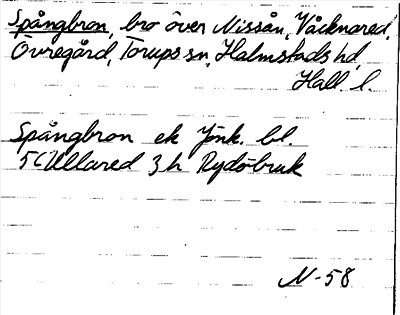 Spångbron, bro över Nissån, Våcknared,
Övregård, Torups sn, Halmstads hd,
Hall l.
Spångbron ek Jönk. bl.
5C Ullared 3 h Rydöbruk
N-58